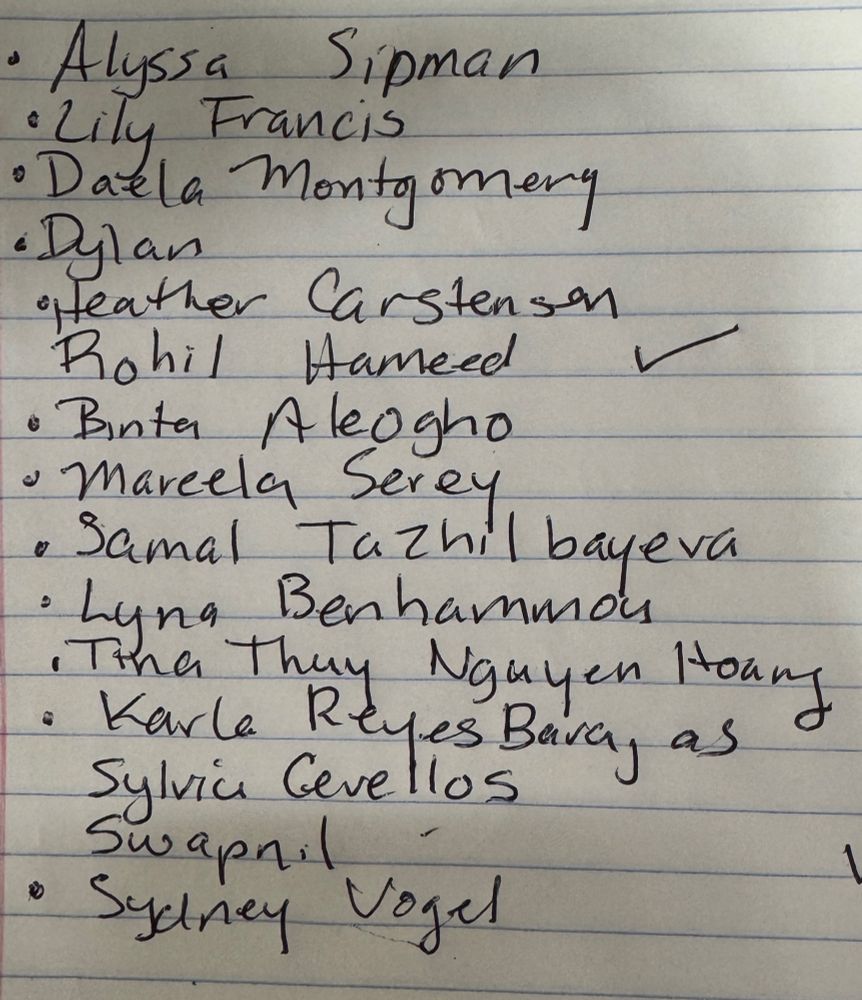 • Alyssa Sipman
• Lily Francis
• Daela Montgomery
• Dylan
• Heather Carstensen
Rohil Hameed ✓
• Binta Aleogho
• Mareela Serey
• Samal Tazhilbayeva
• Lyna Benhammou
• Tina Thuy Nguyen Hoang
• Karla Reyes Barajas
Sylvia Cevellos
Swapnil
• Sydney Vogel